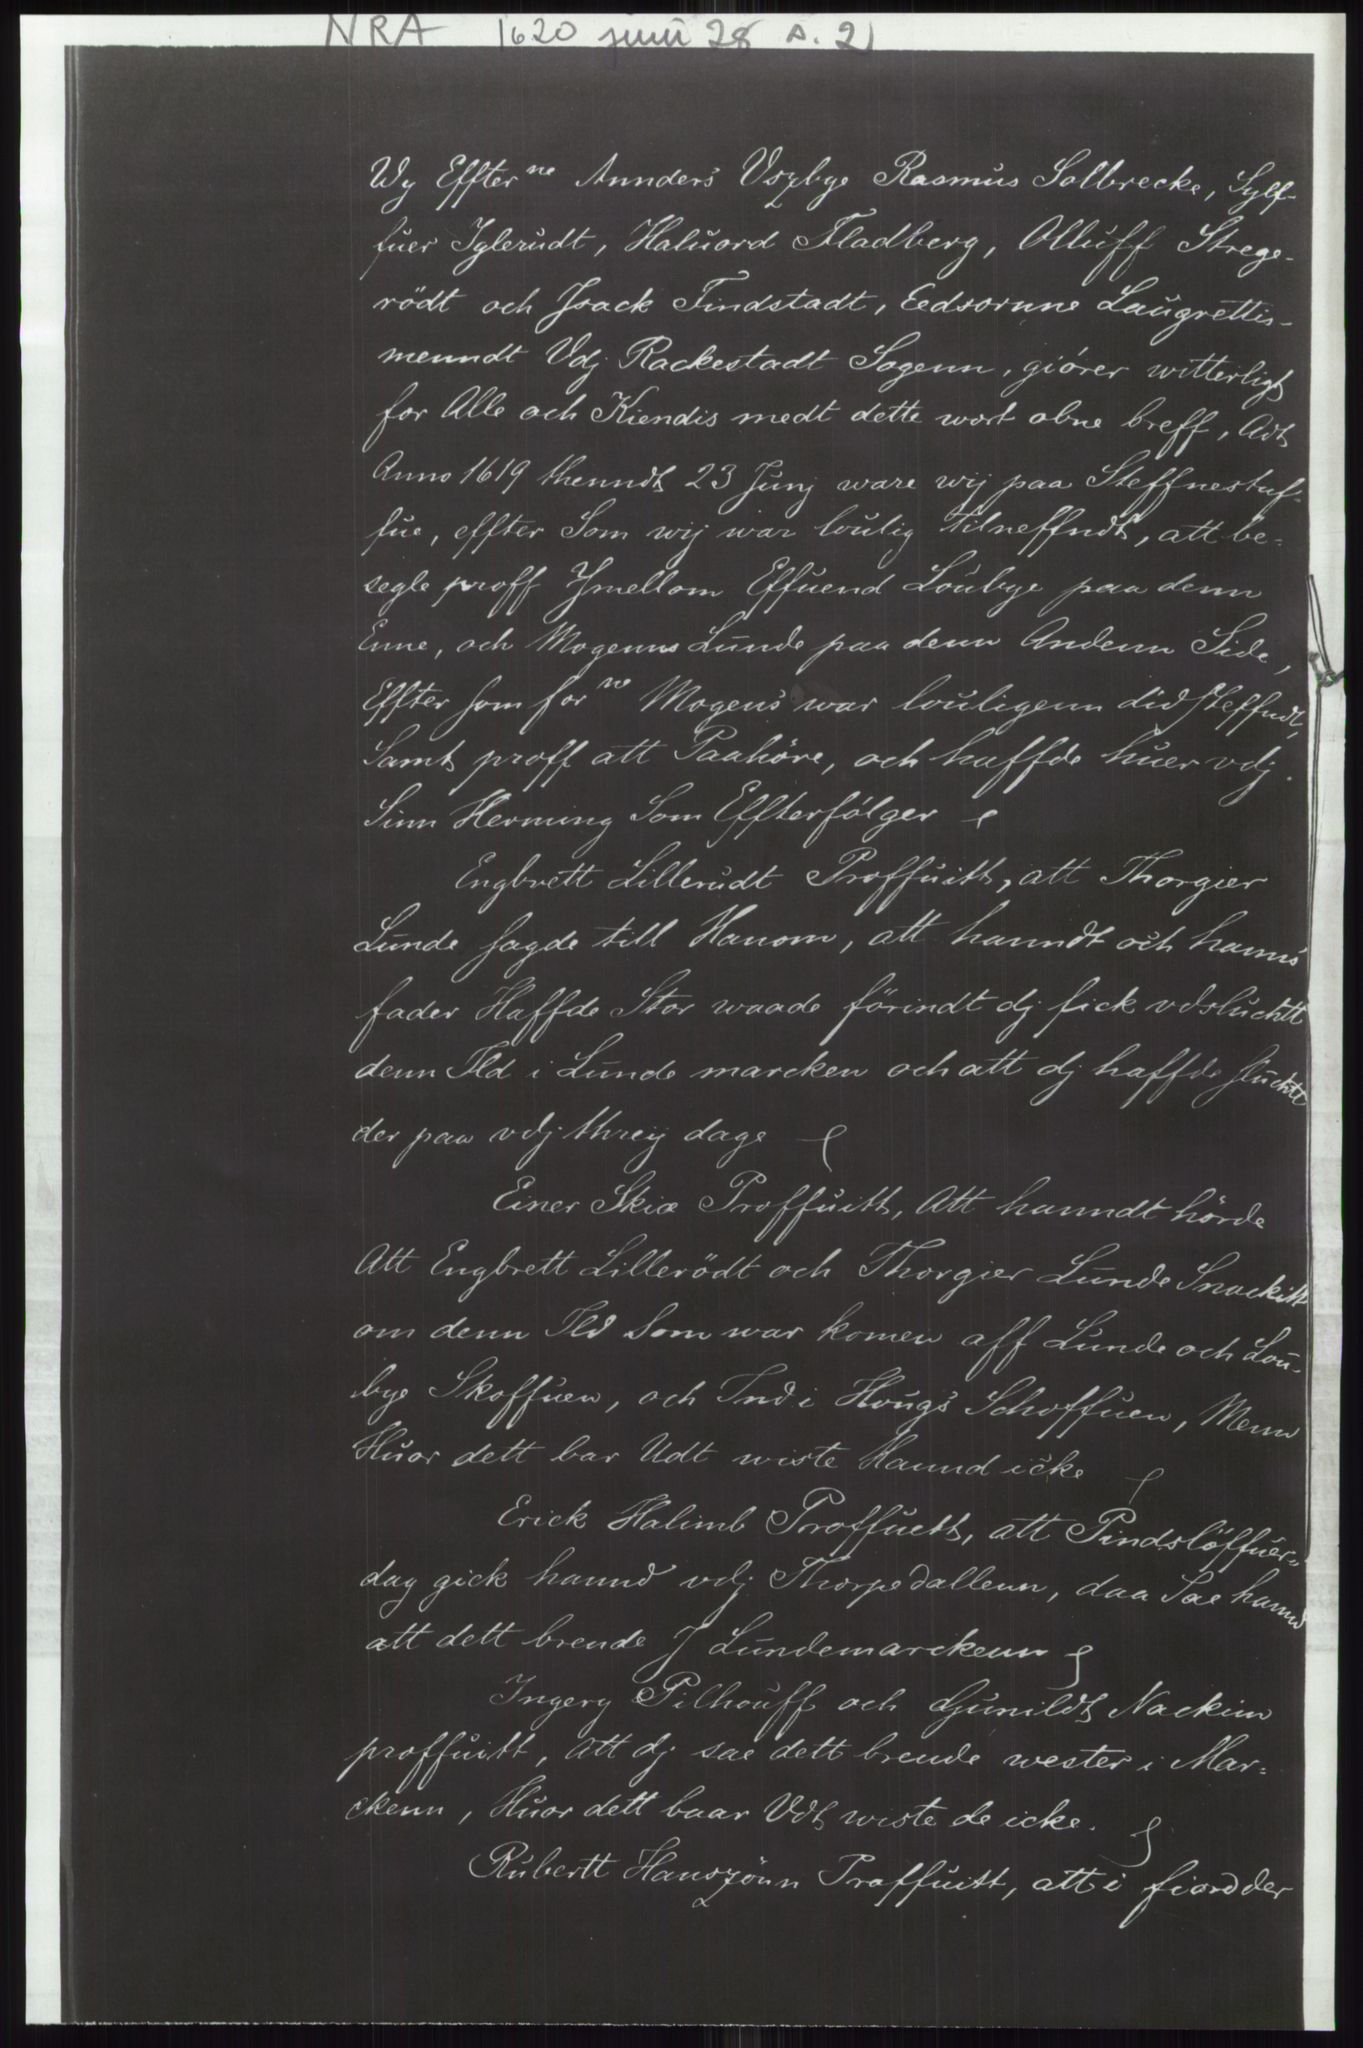 NRA 1620 juni 28 s. 2)
Wy Effter ne Annders Vszbye Rasmus Solbrecke, Sylf-
fuer Iglerudt, Haluord Fladberg, Olluff Strege-
rödt och Jsack Findstadt, Eedsornne Laugrettis-
menndt Vdj Rackestadt Sogenn, giörer witterligt
for Alle och Kiendis medt dette wort obne breff, Adt
Anno 1619 thenndt 23 Junj ware wij paa Steffnestuf-
fue, effter Som wij war loulig tilneffndt, att be-
segle proff Jmellom Effuend Loubye paa denn
Enne, och Mogenns Lunde paa denn Andenn Side,
Effter som for ne Mogens war louligenn did steffndt,
Samt proff att Paahöre, och haffde huer vdj.
Sinn Herming Som Effterfölger
Engbrett Lillerudt Proffuitt, att Thorgier
Lunde sagde till Hanom, att hanndt och hanns
fader Haffde Stor waade förindt dj fick vdsluchtt
denn Ild i Lunde marcken och att dj haffde sluchtt
der paa vdj threij dage
Einer Skie Proffuitt, Att hanndt hörde
Att Engbrett Lillerödt och Thorgier Lunde Snackitt
om denn Ild Som war komen aff Lunde och Lou-
bye Skoffuen, och Ind i Hougs Schoffuen, Menn
Huor dett bar Udt wiste Hannd icke
Erick Halimb Proffuett, att Pindslöffuer-
dag gick hannd vdj Thorpedallenn, daa Sae hannd
att dett brende J Lundemarckenn
Ingery Pilhouff och Gunildt Nackim
proffuitt, Att dj sae dett brende wester i Mar-
ckenn, Huor dett baar Vdt wiste de icke.
Rubertt Hanszönn Proffuitt, att i fiord der